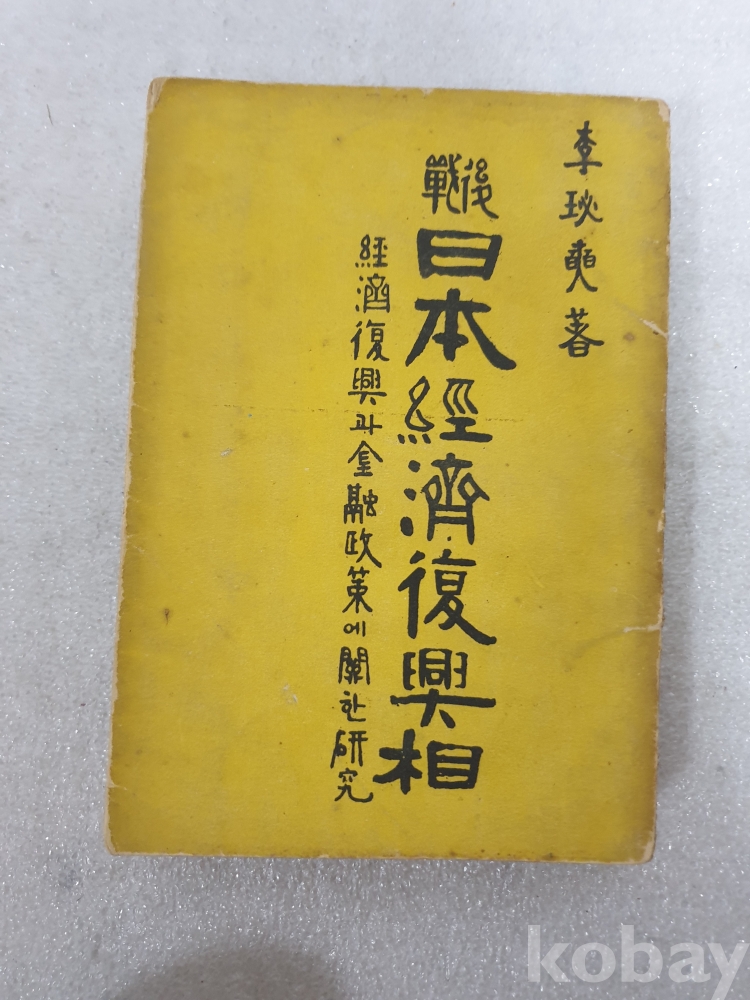 李珌奭 著
戰後
日本經濟復興相
經濟復興과 金融政策에 關한 研究
kobay